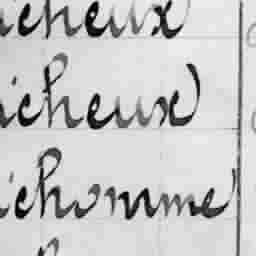 icheux
icheux
ichomme